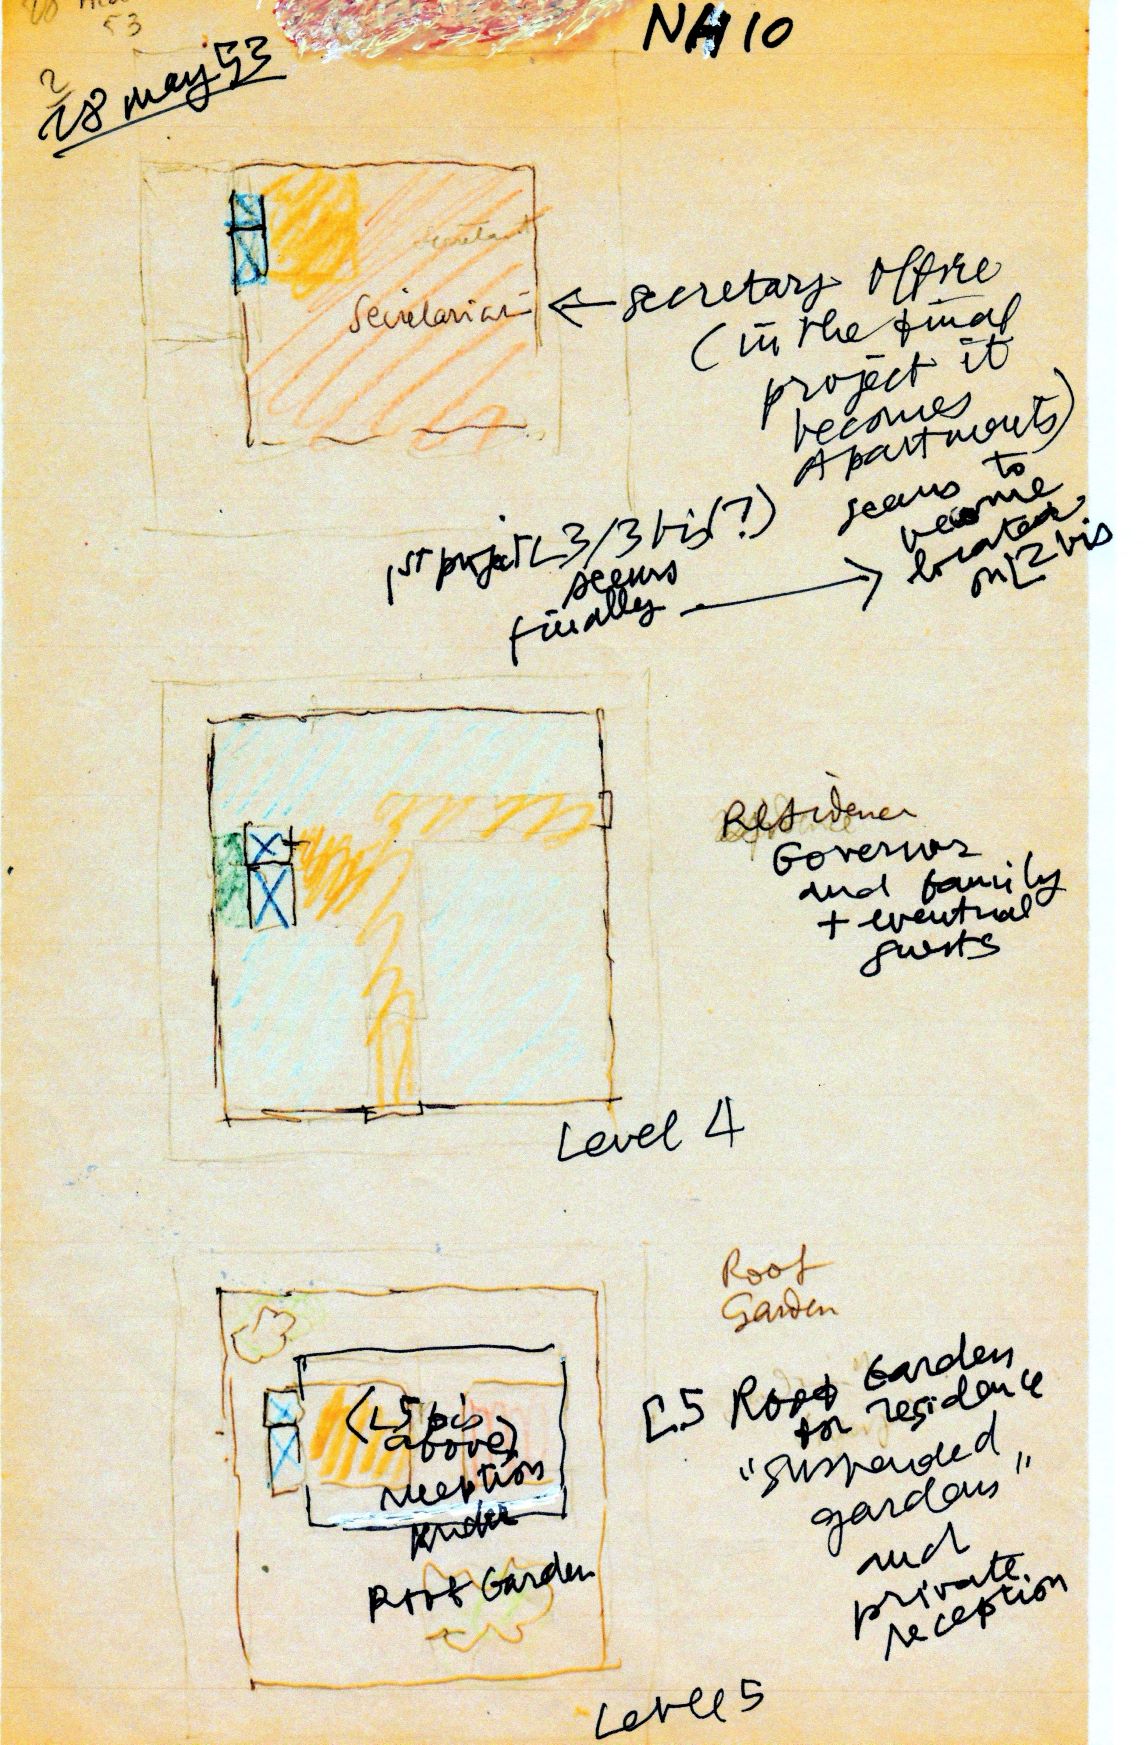 53
NH10
28 may 53
Secretariat
← secretary office
(in the final
project it
becomes
Apartments)
seems to
become
located
on L2 bis
1st project L3/3 bis (?)
seems
finally
Residence
Governor
and family
+ eventual
guests
Level 4
Roof
Garden
L5 Roof Garden
for residence
"suspended
gardens"
and
private
reception
(L5 bis
above)
reception
under
Roof Garden
Level 5